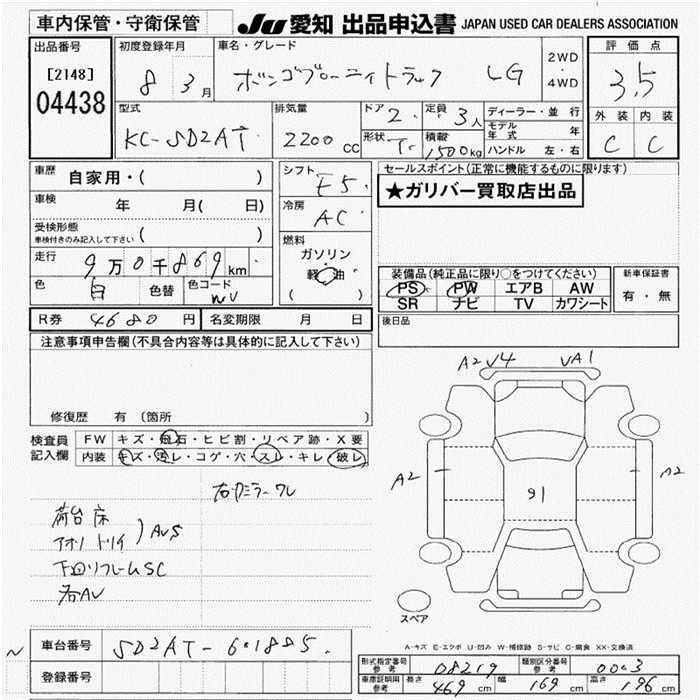 車内保管・守衛保管 JU 愛知 出品申込書 JAPAN USED CAR DEALERS ASSOCIATION
出品番号 初度登録年月 車名・グレード 評価点
[2148] 8 3月 ボンゴブローニイトラック LG 2WD・4WD 3.5
04438 型式 排気量 ドア 2 定員 3人 ディーラー・並行 外装 内装
KC-SD2AT 2200cc 形状 T 積載 1500kg モデル年式 年 C C
ハンドル 左・右
車歴 自家用・( ) シフト F5 セールスポイント(正常に機能するものに限ります)
★ガリバー買取店出品
車検 年 月( 日) 冷房 AC
受検形態 ( )
車検付きのみ記入して下さい
燃料 ガソリン・軽油 ( )
走行 9万0千869km
色 白 色替 色コード WV
装備品(純正品に限り○をつけてください) 新車保証書
PS PW エアB AW 有・無
SR ナビ TV カワシート
R券 4680円 名変期限 月 日 後日品
注意事項申告欄(不具合内容等は具体的に記入して下さい)
修復歴 有(箇所 )
検査員記入欄 FW キズ・飛石・ヒビ割・リペア跡・X要
内装 キズ・汚レ・コゲ・穴・スレ・キレ・破レ
A2 V4 VA1
A2 A2
91
右ミラーワレ
荷台床
アオリ トリイ ) AVS
下回リフレームSC
各AV
スペア
A-キズ E-エクボ U-凹み W-補修跡 S-サビ C-腐食 XX-交換済
車台番号 SD2AT-601885
登録番号
形式指定番号 参考 08219 類別区分番号 参考 0003
車庫証明用 参考 長さ 469cm 幅 169cm 高さ 196cm